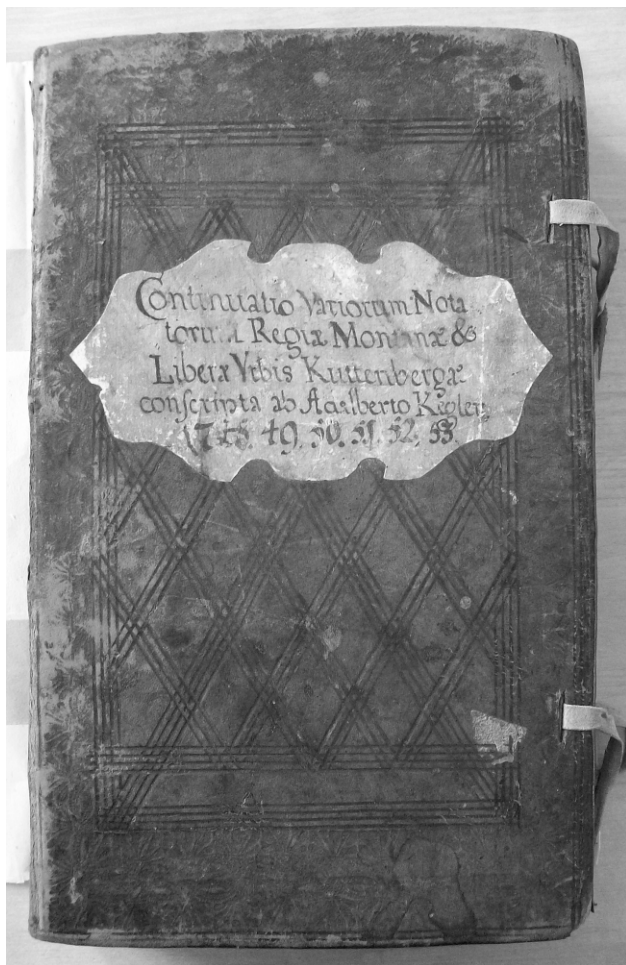 Continuatio Variorum Nota
torum Regiæ Montanæ &
Liberæ Vrbis Kuttenbergæ
conscripta ab Adalberto Kegler
1748. 49. 50. 51. 52. 53.